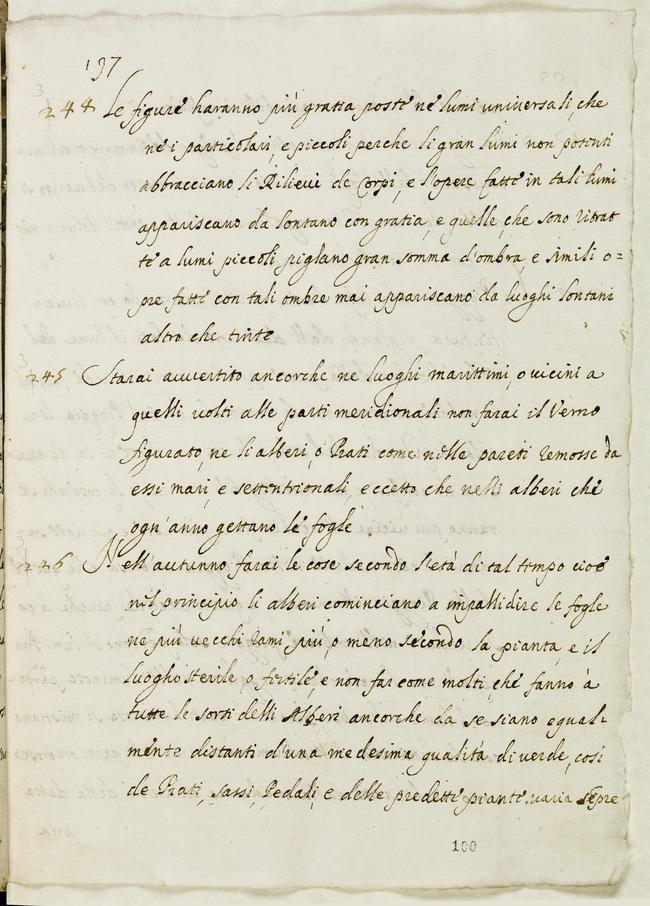 137
244 Le figure haranno più gratia poste ne lumi universali, che
ne i particolari, e piccoli perche li gran lumi non potenti
abbracciano li Rilievi de Corpi, e l'opere fatte in tali lumi
appariscano da lontano con gratia, e quelle, che sono ritrat
te a lumi piccoli pigliano gran somma d'ombra, e simili o=
pre fatte con tali ombre mai appariscano da luoghi lontani
altro che tinte
245 Starai avvertito ancorche ne luoghi marittimi, o vicini a
quelli volti alle parti meridionali non farai il Verno
figurato, ne li alberi, o Prati come nelle pareti remosse da
essi mari, e settentrionali, eccetto che nelli alberi che
ogn'anno gettano le foglie
246 Nell'autunno farai le cose secondo l'età di tal tempo cioè
nel principio li alberi cominciano a impallidire le foglie
ne più vecchi rami più, o meno secondo la pianta, e il
luogho sterile, o fertile, e non far come molti, che fanno à
tutte le sorti delli Alberi ancorche da se siano egual-
mente distanti d'una medesima qualità di verde, così
de Prati, sassi, Pedali, e delle predette piante varia sēpre
100